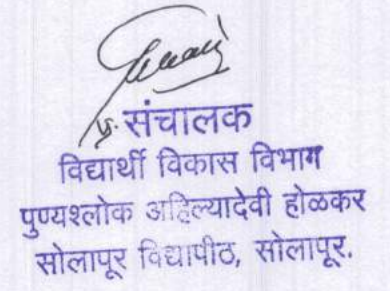 प्र. संचालक
विद्यार्थी विकास विभाग
पुण्यश्लोक अहिल्यादेवी होळकर
सोलापूर विद्यापीठ, सोलापूर.